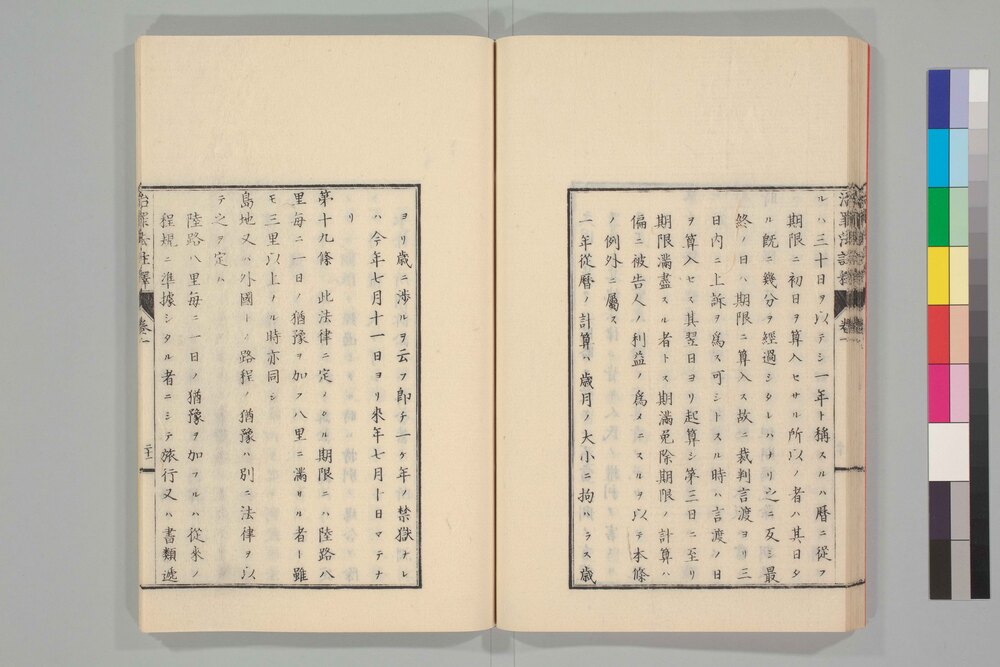 ルハ三十日ヲ以テシ一年ト稱スルハ暦ニ從フ
期限ニ初日ヲ算入セサル所以ノ者ハ其日タ
ル既ニ幾分ヲ經過シタレハナリ之ニ反シ最
終ノ日ハ期限ニ算入ス故ニ裁判言渡ヨリ三
日内ニ上訴ヲ爲ス可シトスル時ハ言渡ノ日
ヲ算入セス其翌日ヨリ起算シ第三日ニ至リ
期限滿盡スル者トス期滿免除期限ノ計算ハ
偏ニ被告人ノ利益ノ爲メニスルヲ以テ本條
ノ例外ニ屬ス
一年從暦ノ計算ハ歳月ノ大小ニ拘ハラス歳
ヨリ歳ニ渉ルヲ云フ即チ一ケ年ノ禁獄ナレ
ハ今年七月十一日ヨリ來年七月十日マテナ
リ
第十九條 此法律ニ定メタル期限ニハ陸路八
里毎ニ一日ノ猶豫ヲ加フ八里ニ滿サル者ト雖
モ三里以上ナル時亦同シ
島地又ハ外國トノ路程ノ猶豫ハ別ニ法律ヲ以
テ之ヲ定ム
陸路八里毎ニ一日ノ猶豫ヲ加フルハ從來ノ
程規ニ準據シタル者ニシテ旅行又ハ書類遞
治罪法註釋 卷一